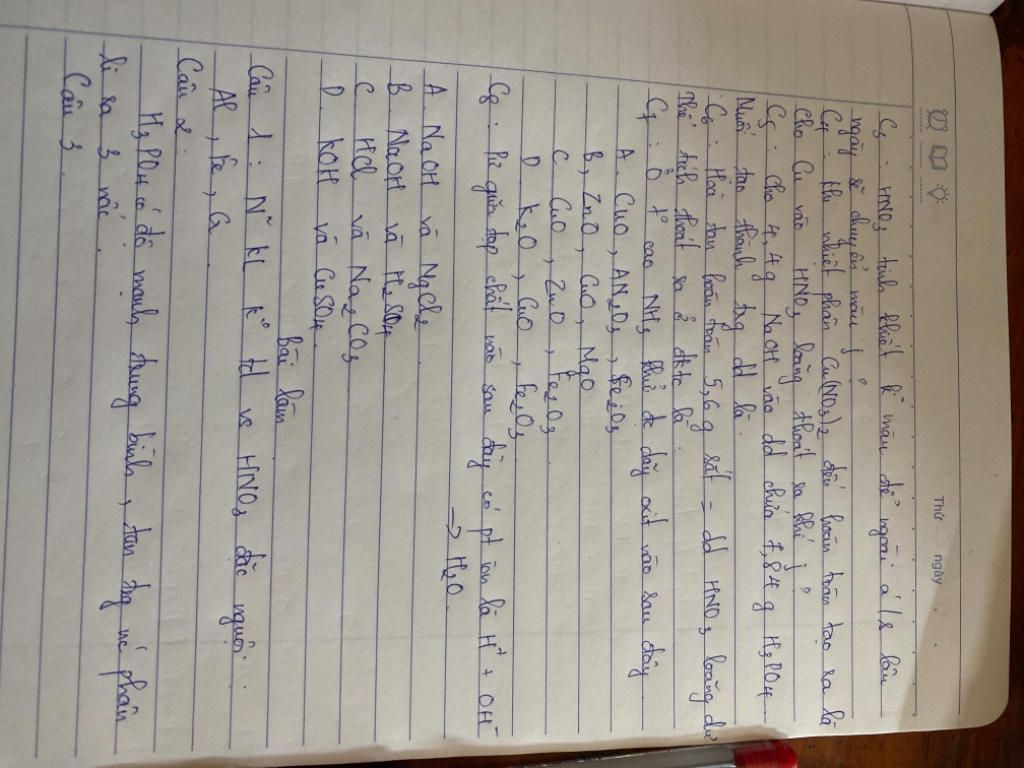 Thứ
ngày
C3 : HNO3 tinh khiết k màu để ngoài a/s lâu
ngày sẽ chuyển màu j ?
C4 : khi nhiệt phân Cu(NO3)2 đến hoàn toàn tạo ra là
Cho Cu vào HNO3 loãng thoát ra khí j ?
C5 : cho 4,4g NaOH vào dd chứa 7,84 g H3PO4
Muối tạo thành trg dd là
C6 : Hoà tan hoàn toàn 5,6 g sắt = dd HNO3 loãng dư
thể tích thoát ra ở đktc là :
C7 : Ở t° cao NH3 khử đc dãy oxit nào sau đây
A. CuO, Al2O3, Fe2O3
B, ZnO, CuO, MgO
C CuO, ZnO, Fe2O3
D K2O, CuO, Fe2O3
C8 : Pứ giữa cặp chất nào sau đây có pt ion là H+ + OH-
→ H2O.
A. NaOH và MgCl2.
B NaOH và H2SO4
C HCl và Na2CO3
D. KOH và CuSO4.
Bài làm
Câu 1 : N~ kl k° td vs HNO3 đặc nguội :
Al, Fe, Cr
Câu 2 :
H3PO4 có độ mạnh trung bình, tan trg nc phân
li ra 3 nấc.
Câu 3